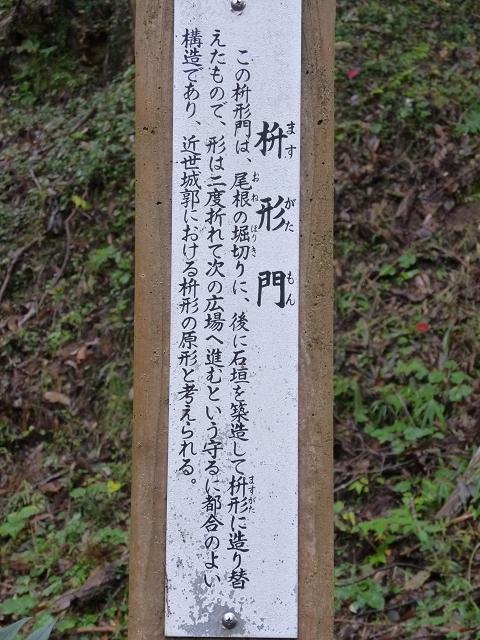 枡形門
ます
がた
もん
この枡形門は、尾根の堀切りに、後に石垣を築造して枡形に造り替
おね
ほりき
ますがた
えたもので、形は二度折れて次の広場へ進むという守るに都合のよい
構造であり、近世城郭における枡形の原形と考えられる。